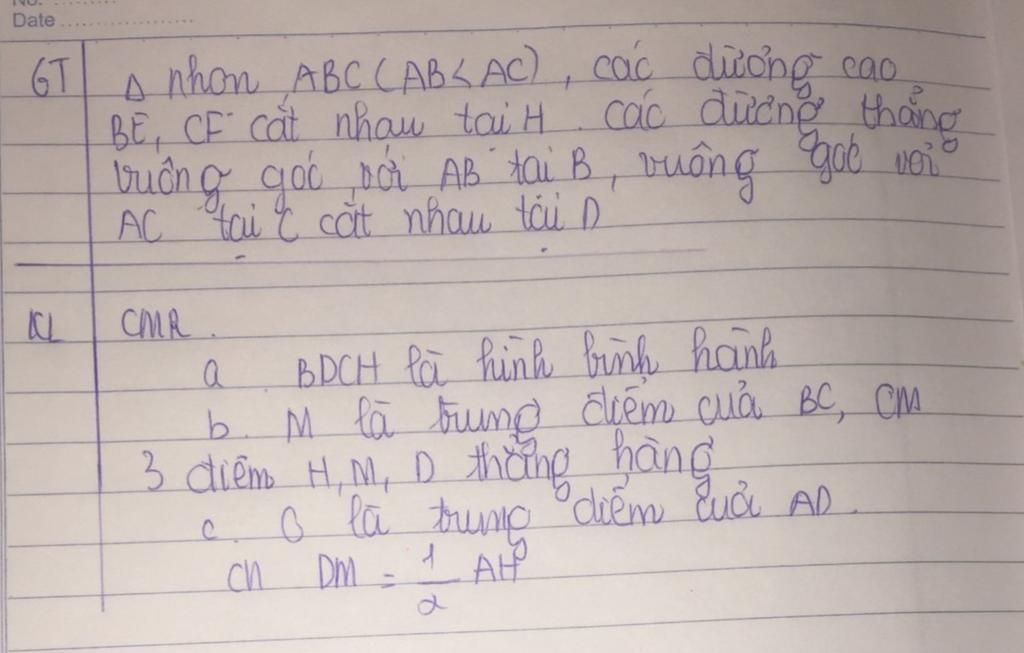 No: ............
Date ....................
GT Δ nhọn ABC (AB < AC), các đường cao
BE, CF cắt nhau tại H. Các đường thẳng
vuông góc với AB tại B, vuông góc với
AC tại C cắt nhau tại D
KL CMR.
a. BDCH là hình bình hành
b. M là trung điểm của BC, CM
3 điểm H, M, D thẳng hàng
c. O là trung điểm của AD.
CM DM = 1/2 AH